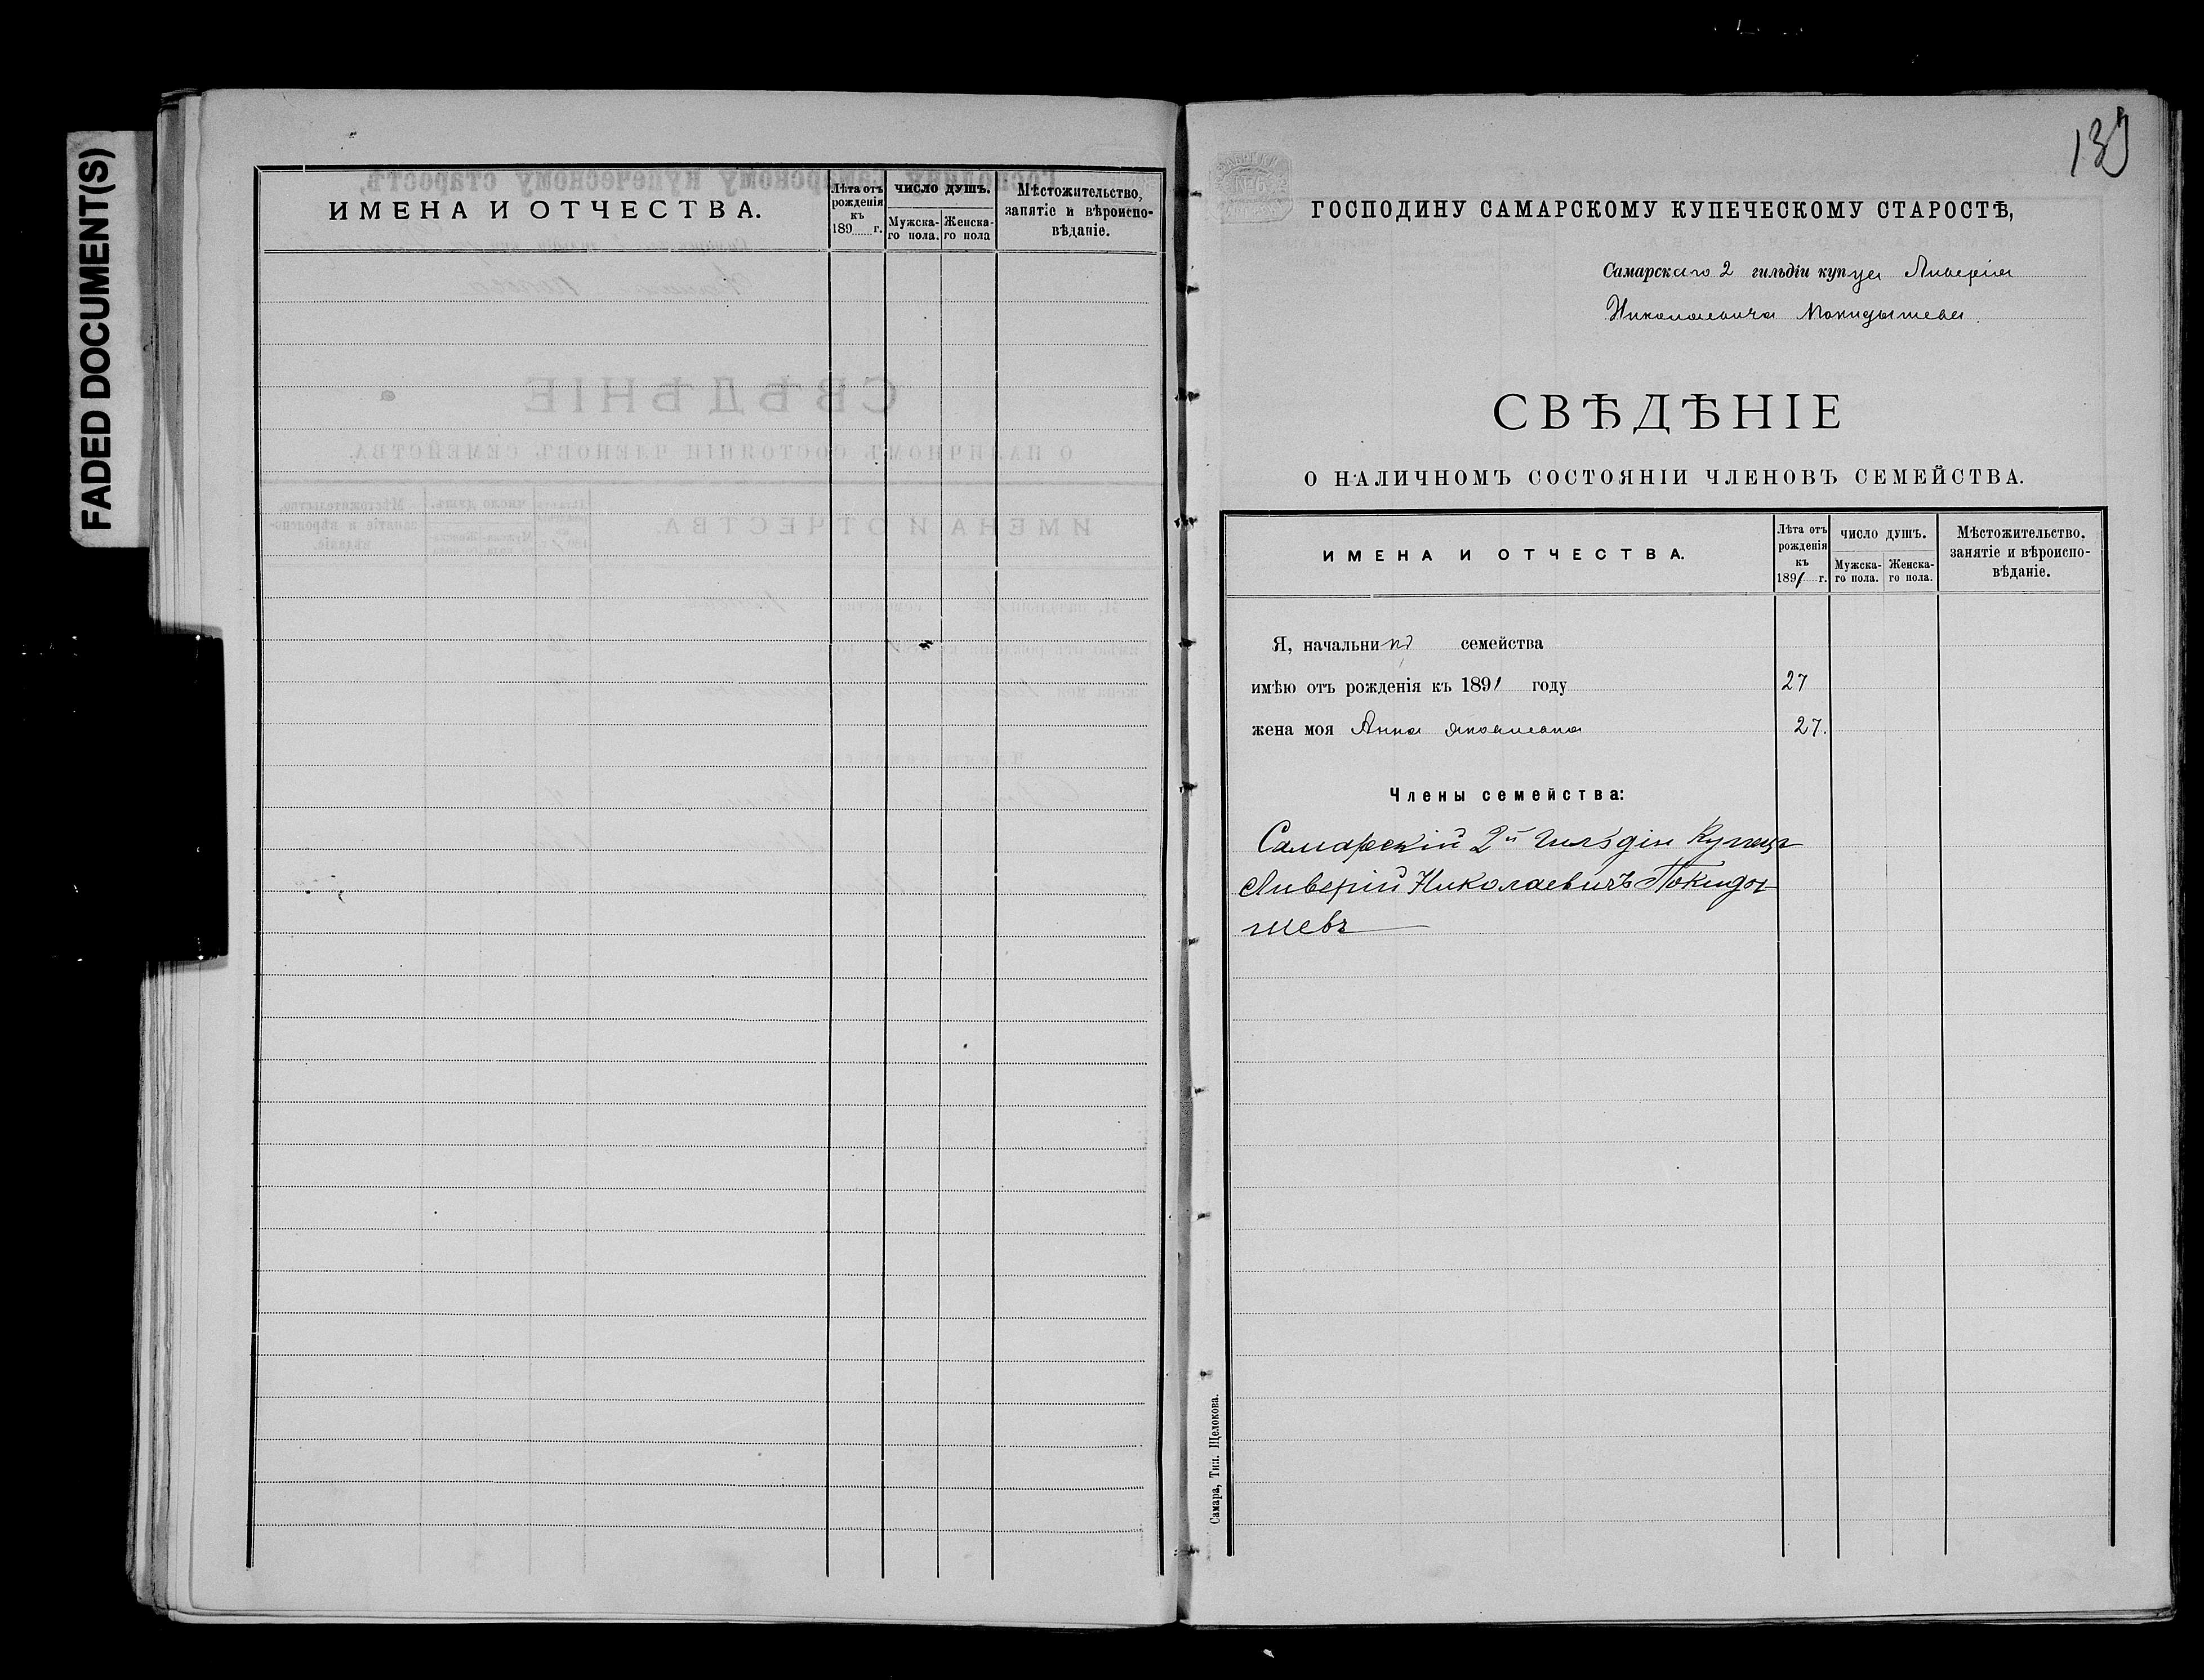 FADED DOCUMENT(S)
ИМЕНА И ОТЧЕСТВА.
Лѣта отъ рожденія къ 189 г.
ЧИСЛО ДУШЪ.
Мужска-го пола.
Женска-го пола
Мѣстожительство, занятіе и вѣроиспо-вѣданіе.
139
ГОСПОДИНУ САМАРСКОМУ КУПЕЧЕСКОМУ СТАРОСТѢ,
Самарскаго 2 гильдіи купца Ливерія
Николаевича Покидышева.
СВѢДѢНІЕ
О НАЛИЧНОМЪ СОСТОЯНІИ ЧЛЕНОВЪ СЕМЕЙСТВА.
ИМЕНА И ОТЧЕСТВА.
Лѣта отъ рожденія къ 1891 г.
ЧИСЛО ДУШЪ.
Мужска-го пола.
Женска-го пола.
Мѣстожительство. занятіе и вѣроиспо-вѣданіе.
Я, начальникъ семейства
имѣю отъ рожденія къ 1891 году 27
жена моя Анна Яковлевна 27.
Члены семейства:
Самарскій 2й Гильдіи Купецъ
Ливерій Николаевичъ Покиды
шевъ
Самара, Тип. Щелокова.